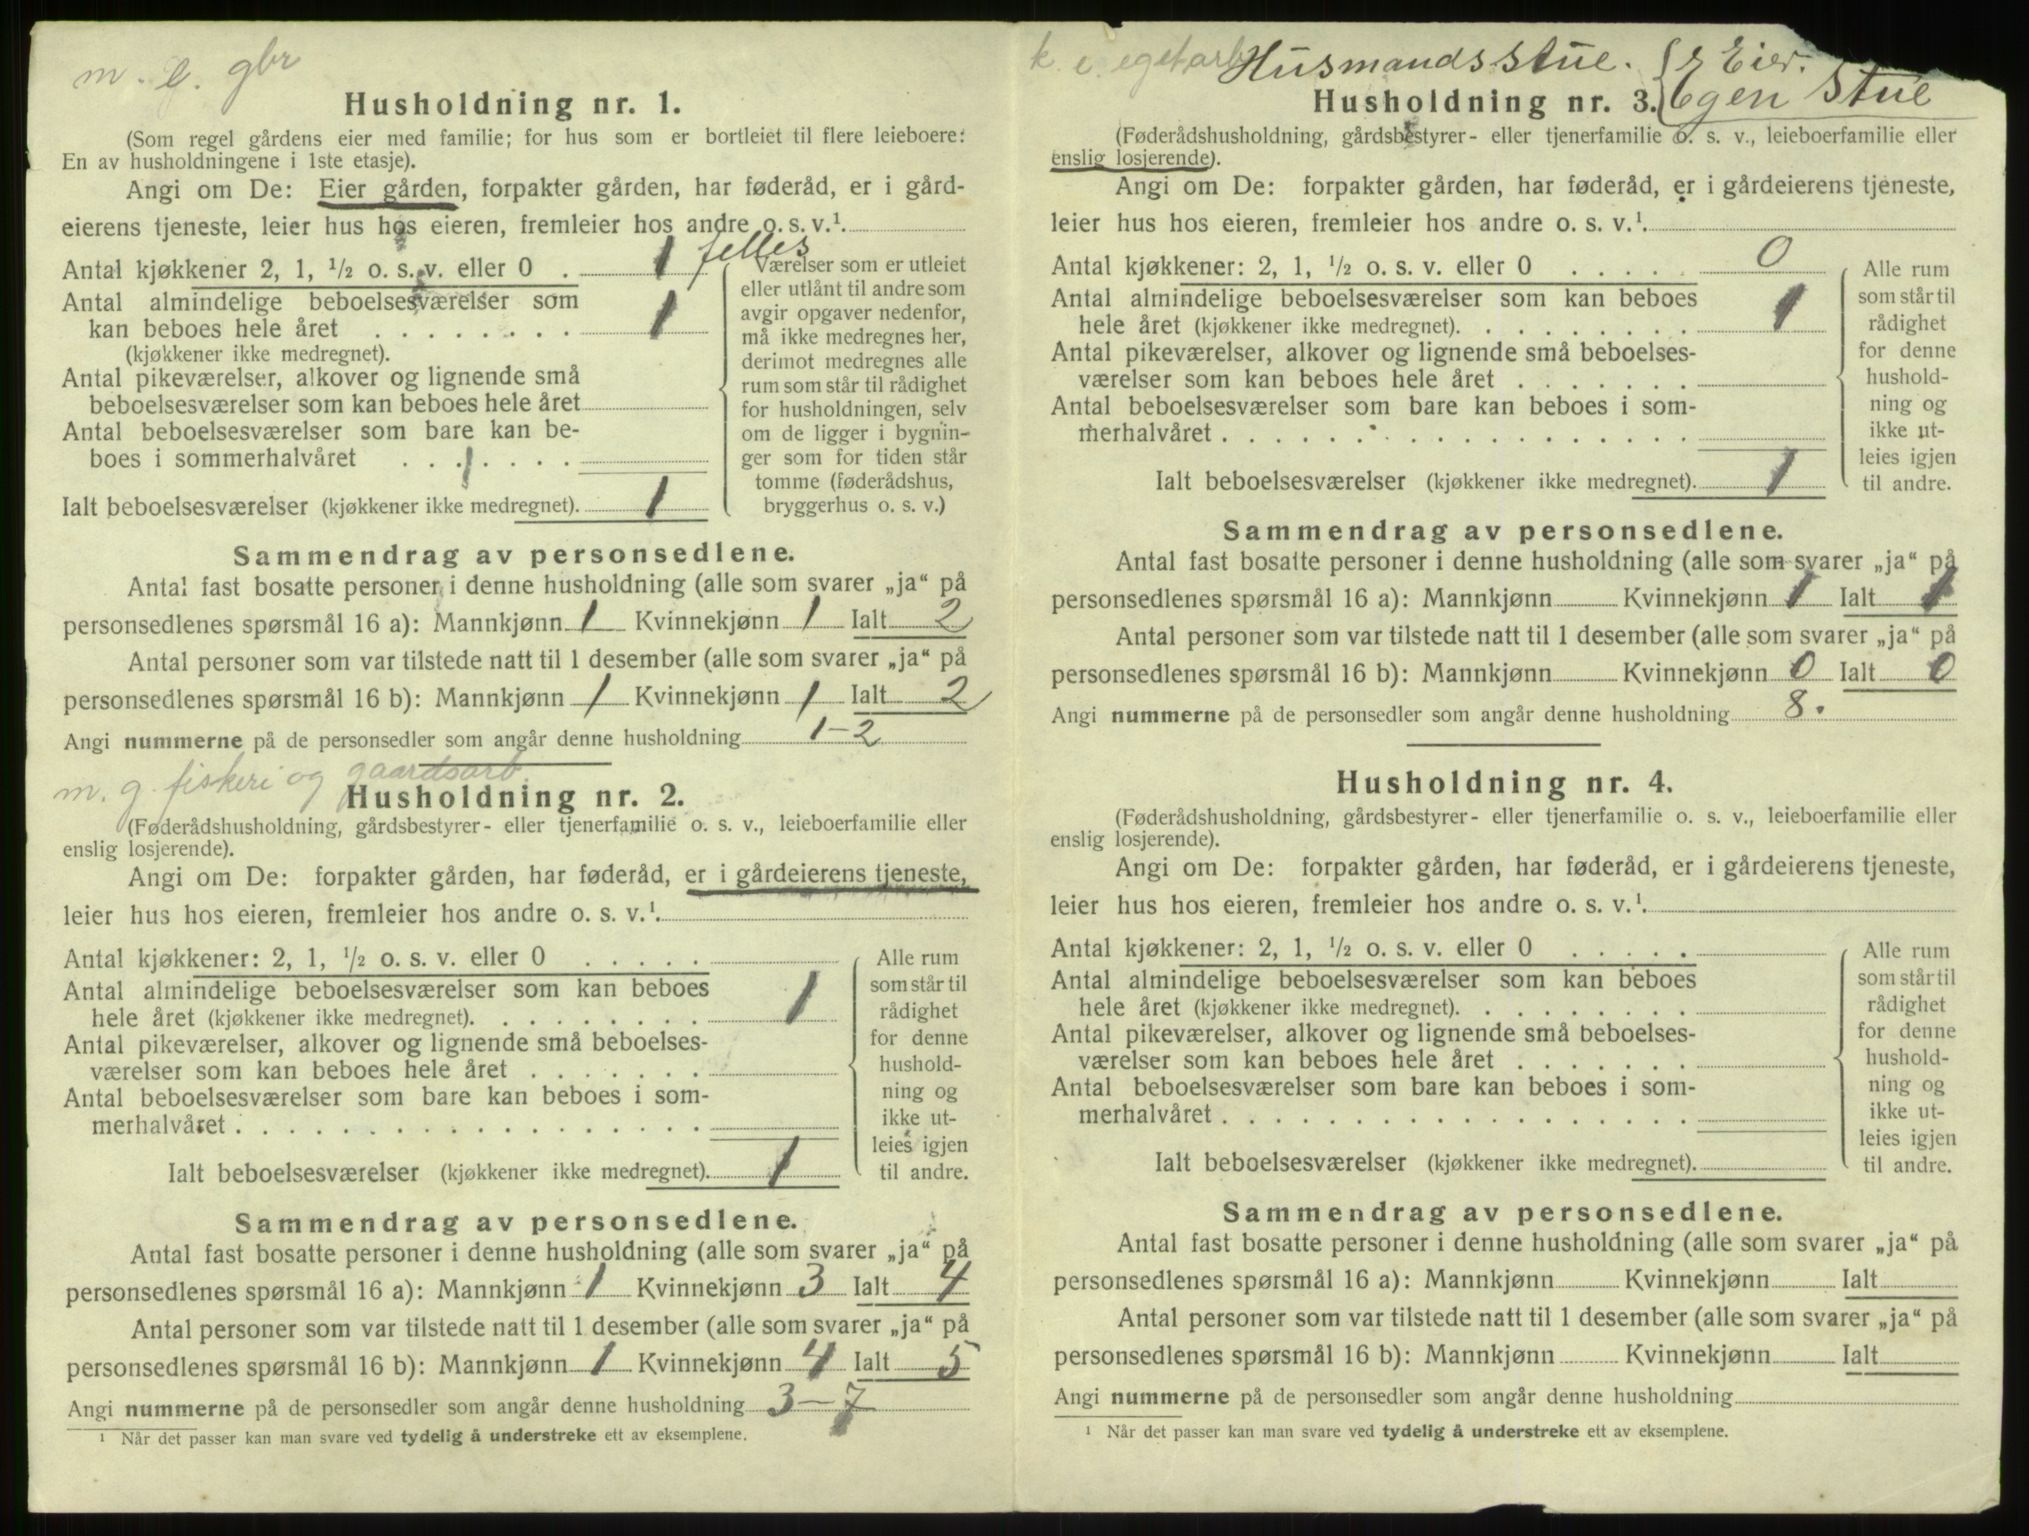 m. e. gbr
Husholdning nr. 1.
(Som regel gårdens eier med familie; for hus som er bortleiet til flere leieboere:
En av husholdningene i 1ste etasje).
Angi om De: Eier gården, forpakter gården, har føderåd, er i gård-
eierens tjeneste, leier hus hos eieren, fremleier hos andre o. s. v.¹.
Antal kjøkkener 2, 1, ½ o. s. v. eller 0 . 1 felles
Antal almindelige beboelsesværelser som
kan beboes hele året . . . . . . . . 1
(kjøkkener ikke medregnet).
Antal pikeværelser, alkover og lignende små
beboelsesværelser som kan beboes hele året
Antal beboelsesværelser som bare kan be-
boes i sommerhalvåret . . . . . . .
Ialt beboelsesværelser (kjøkkener ikke medregnet). 1
Værelser som er utleiet
eller utlånt til andre som
avgir opgaver nedenfor,
må ikke medregnes her,
derimot medregnes alle
rum som står til rådighet
for husholdningen, selv
om de ligger i bygnin-
ger som for tiden står
tomme (føderådshus,
bryggerhus o. s. v.)
Sammendrag av personsedlene.
Antal fast bosatte personer i denne husholdning (alle som svarer „ja“ på
personsedlenes spørsmål 16 a): Mannkjønn 1 Kvinnekjønn 1 Ialt 2
Antal personer som var tilstede natt til 1 desember (alle som svarer „ja“ på
personsedlenes spørsmål 16 b): Mannkjønn 1 Kvinnekjønn 1 Ialt 2
Angi nummerne på de personsedler som angår denne husholdning 1-2
m. g. fiskeri og gaardsarb.
Husholdning nr. 2.
(Føderådshusholdning, gårdsbestyrer- eller tjenerfamilie o. s. v., leieboerfamilie eller
enslig losjerende).
Angi om De: forpakter gården, har føderåd, er i gårdeierens tjeneste,
leier hus hos eieren, fremleier hos andre o. s. v.¹.
Antal kjøkkener: 2, 1, ½ o. s. v. eller 0 . . . . .
Antal almindelige beboelsesværelser som kan beboes
hele året (kjøkkener ikke medregnet). . . . . . . . . 1
Antal pikeværelser, alkover og lignende små beboelses-
værelser som kan beboes hele året . . . . . . .
Antal beboelsesværelser som bare kan beboes i som-
merhalvåret . . . . . . . . . . . . . . . . .
Ialt beboelsesværelser (kjøkkener ikke medregnet). 1
Alle rum
som står til
rådighet
for denne
hushold-
ning og
ikke ut-
leies igjen
til andre.
Sammendrag av personsedlene.
Antal fast bosatte personer i denne husholdning (alle som svarer „ja“ på
personsedlenes spørsmål 16 a): Mannkjønn 1 Kvinnekjønn 3 Ialt 4
Antal personer som var tilstede natt til 1 desember (alle som svarer „ja“ på
personsedlenes spørsmål 16 b): Mannkjønn 1 Kvinnekjønn 4 Ialt 5
Angi nummerne på de personsedler som angår denne husholdning 3-7
¹ Når det passer kan man svare ved tydelig å understreke ett av eksemplene.
k. e. egetarb Husmandsstue. { Eier.
Husholdning nr. 3. Egen Stue
(Føderådshusholdning, gårdsbestyrer- eller tjenerfamilie o. s. v., leieboerfamilie eller
enslig losjerende).
Angi om De: forpakter gården, har føderåd, er i gårdeierens tjeneste,
leier hus hos eieren, fremleier hos andre o. s. v.¹.
Antal kjøkkener: 2, 1, ½ o. s. v. eller 0 . . . . . 0
Antal almindelige beboelsesværelser som kan beboes
hele året (kjøkkener ikke medregnet). . . . . . . . . 1
Antal pikeværelser, alkover og lignende små beboelses-
værelser som kan beboes hele året . . . . . . .
Antal beboelsesværelser som bare kan beboes i som-
merhalvåret . . . . . . . . . . . . . . . . .
Ialt beboelsesværelser (kjøkkener ikke medregnet). 1
Alle rum
som står til
rådighet
for denne
hushold-
ning og
ikke ut-
leies igjen
til andre.
Sammendrag av personsedlene.
Antal fast bosatte personer i denne husholdning (alle som svarer „ja“ på
personsedlenes spørsmål 16 a): Mannkjønn Kvinnekjønn 1 Ialt 1
Antal personer som var tilstede natt til 1 desember (alle som svarer „ja“ på
personsedlenes spørsmål 16 b): Mannkjønn Kvinnekjønn 0 Ialt 0
Angi nummerne på de personsedler som angår denne husholdning 8.
Husholdning nr. 4.
(Føderådshusholdning, gårdsbestyrer- eller tjenerfamilie o. s. v., leieboerfamilie eller
enslig losjerende).
Angi om De: forpakter gården, har føderåd, er i gårdeierens tjeneste,
leier hus hos eieren, fremleier hos andre o. s. v.¹.
Antal kjøkkener: 2, 1, ½ o. s. v. eller 0 . . . . .
Antal almindelige beboelsesværelser som kan beboes
hele året (kjøkkener ikke medregnet). . . . . . . . .
Antal pikeværelser, alkover og lignende små beboelses-
værelser som kan beboes hele året . . . . . . .
Antal beboelsesværelser som bare kan beboes i som-
merhalvåret . . . . . . . . . . . . . . . . .
Ialt beboelsesværelser (kjøkkener ikke medregnet).
Alle rum
som står til
rådighet
for denne
hushold-
ning og
ikke ut-
leies igjen
til andre.
Sammendrag av personsedlene.
Antal fast bosatte personer i denne husholdning (alle som svarer „ja“ på
personsedlenes spørsmål 16 a): Mannkjønn Kvinnekjønn Ialt
Antal personer som var tilstede natt til 1 desember (alle som svarer „ja“ på
personsedlenes spørsmål 16 b): Mannkjønn Kvinnekjønn Ialt
Angi nummerne på de personsedler som angår denne husholdning
¹ Når det passer kan man svare ved tydelig å understreke ett av eksemplene.